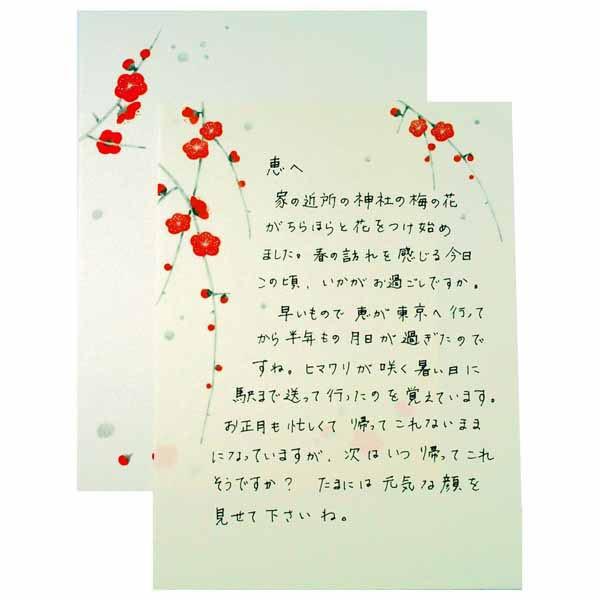 恵へ
家の近所の神社の梅の花
がちらほらと花をつけ始め
ました。春の訪れを感じる今日
この頃、いかがお過ごしですか。
早いもので恵が東京へ行って
から半年もの月日が過ぎたので
すね。ヒマワリが咲く暑い日に
駅まで送って行ったのを覚えています。
お正月も忙しくて帰ってこれないまま
になっていますが、次はいつ帰ってこれ
そうですか？ たまには元気な顔を
見せて下さいね。